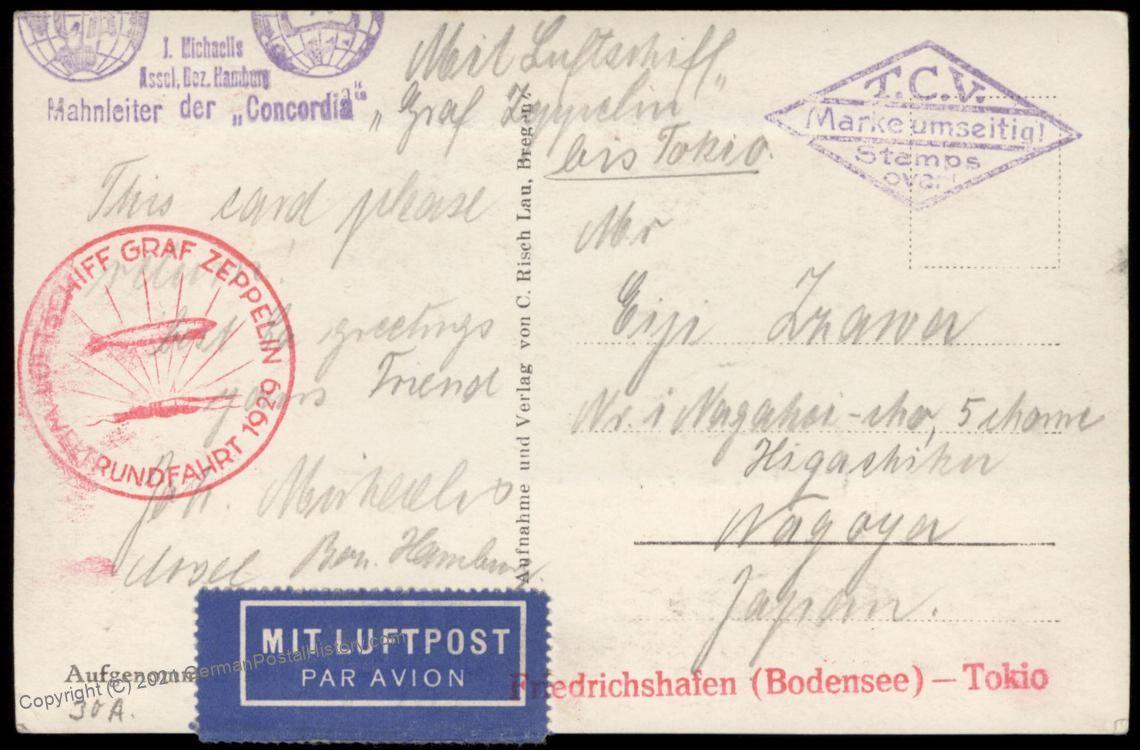 J. Michaelis
Assel, Bez. Hamburg
Mahnleiter der „Concordia“
Mit Luftschiff
„Graf Zeppelin“
bis Tokio.
T.C.V.
Marke umseitig!
Stamps
over!
This card please
return!
best greetings
yours Friend
Joh. Michaelis
Assel Bez. Hamburg.
LUFTSCHIFF GRAF ZEPPELIN
WELTRUNDFAHRT 1929
Aufnahme und Verlag von C. Risch Lau, Bregenz
Mr
Eiji
Nr. 1 Nagahei-cho, 5 chome
Higashiku
Nagoya
Japan.
MIT LUFTPOST
PAR AVION
Friedrichshafen (Bodensee) – Tokio
Aufgenomm
30A.
Copyright (C) 2021 GermanPostalHistory.com